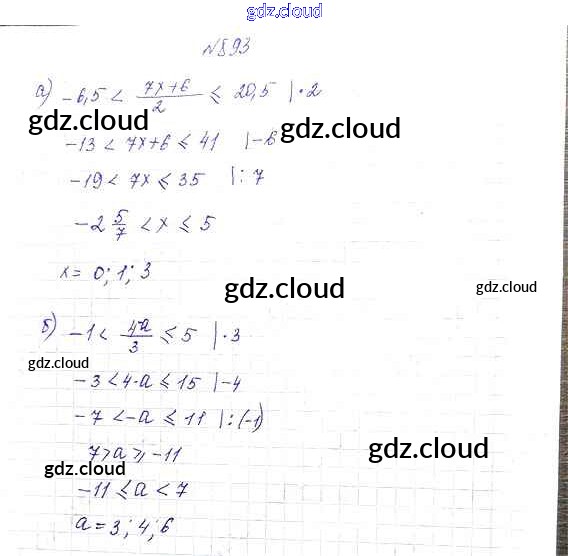 gdz.cloud
№893
а) -6,5 < (7x+6)/2 ≤ 20,5 |·2
gdz.cloud gdz.cloud
-13 < 7x+6 ≤ 41 |-6
-19 < 7x ≤ 35 |: 7
-2 5/7 < x ≤ 5
x = 0; 1; 3
gdz.cloud gdz.cloud
б) -1 < (4-a)/3 ≤ 5 |·3
gdz.cloud
-3 < 4-a ≤ 15 |-4
-7 < -a ≤ 11 |: (-1)
gdz.cloud
7 > a ≥ -11
gdz.cloud
-11 ≤ a < 7
a = 3; 4; 6